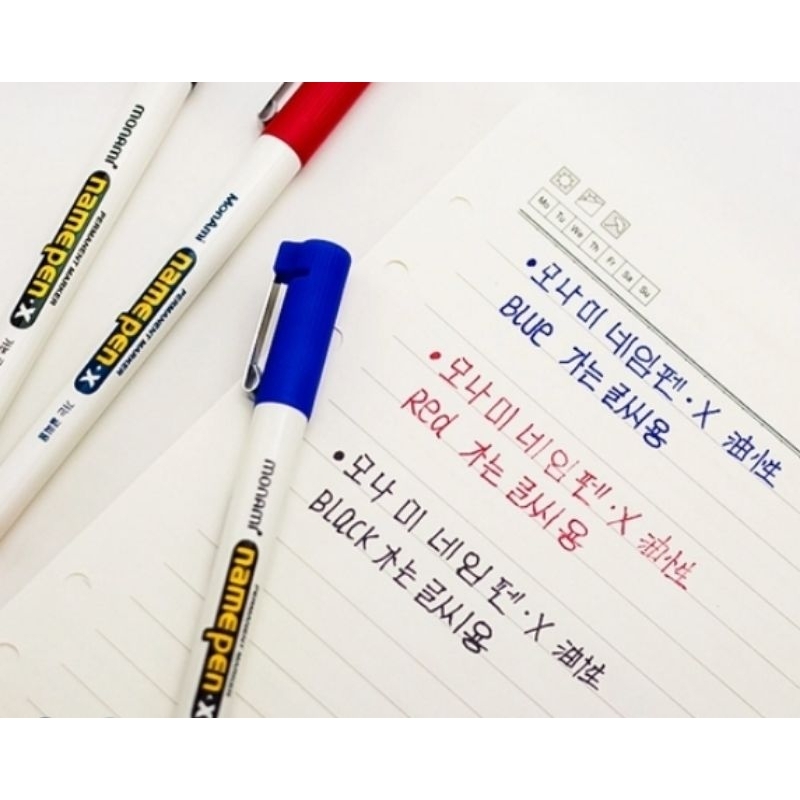 monAmi
namepen·x
PERMANENT MARKER
MonAmi
namepen·x
PERMANENT MARKER
monAmi
namepen·x
PERMANENT MARKER
Mo Tu We Th Fr Sa Su
•모나미 네임펜·X 油性
BLUE 가는글씨용
•모나미 네임펜·X 油性
Red 가는글씨용
•모나미 네임펜·X 油性
BLack 가는글씨용